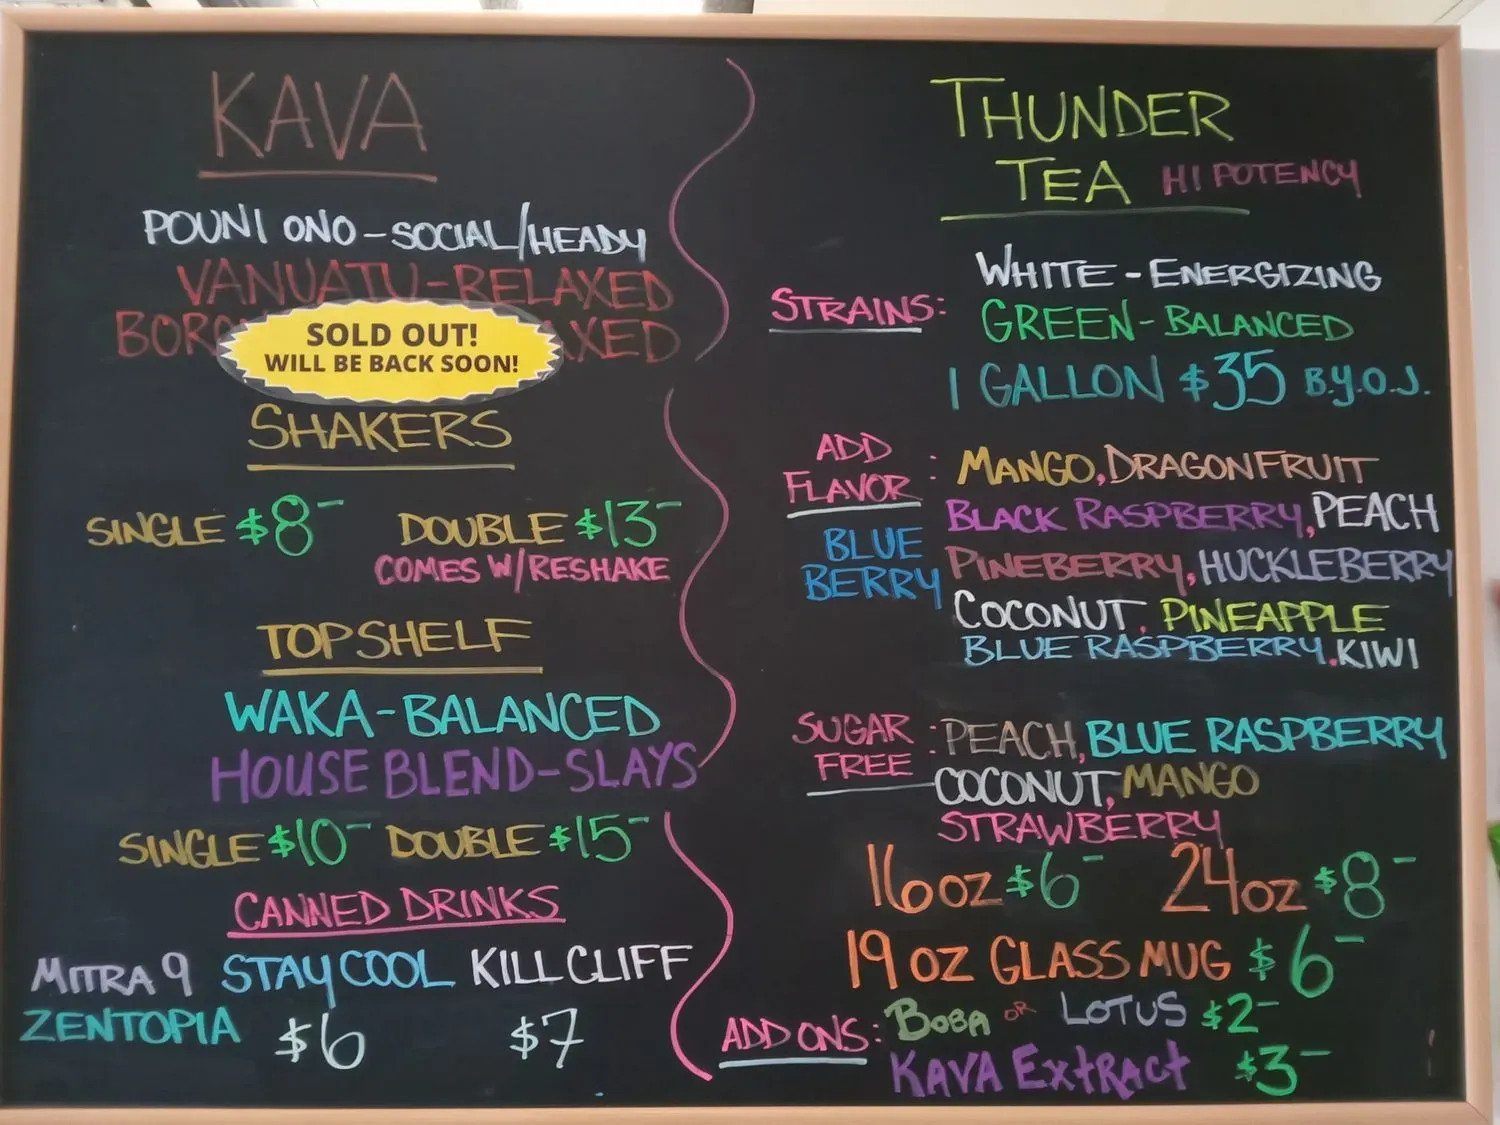 KAVA
POUNI ONO-SOCIAL/HEADY
VANUATU-RELAXED
SOLD OUT!
WILL BE BACK SOON!
SHAKERS
SINGLE $8- DOUBLE $13-
COMES W/RESHAKE
TOPSHELF
WAKA-BALANCED
HOUSE BLEND-SLAYS
SINGLE $10- DOUBLE $15-
CANNED DRINKS
MITRA 9 STAY COOL KILL CLIFF
ZENTOPIA $6 $7
THUNDER
TEA HI POTENCY
STRAINS: WHITE-ENERGIZING
GREEN-BALANCED
1 GALLON $35 B.Y.O.J.
ADD FLAVOR: MANGO, DRAGONFRUIT
BLACK RASPBERRY, PEACH
BLUE BERRY PINEBERRY, HUCKLEBERRY
COCONUT, PINEAPPLE
BLUE RASPBERRY. KIWI
SUGAR FREE: PEACH, BLUE RASPBERRY
COCONUT, MANGO
STRAWBERRY
16oz $6- 24oz $8-
19 oz GLASS MUG $6-
ADD ONS: BOBA OR LOTUS $2-
KAVA ExtRACt $3-